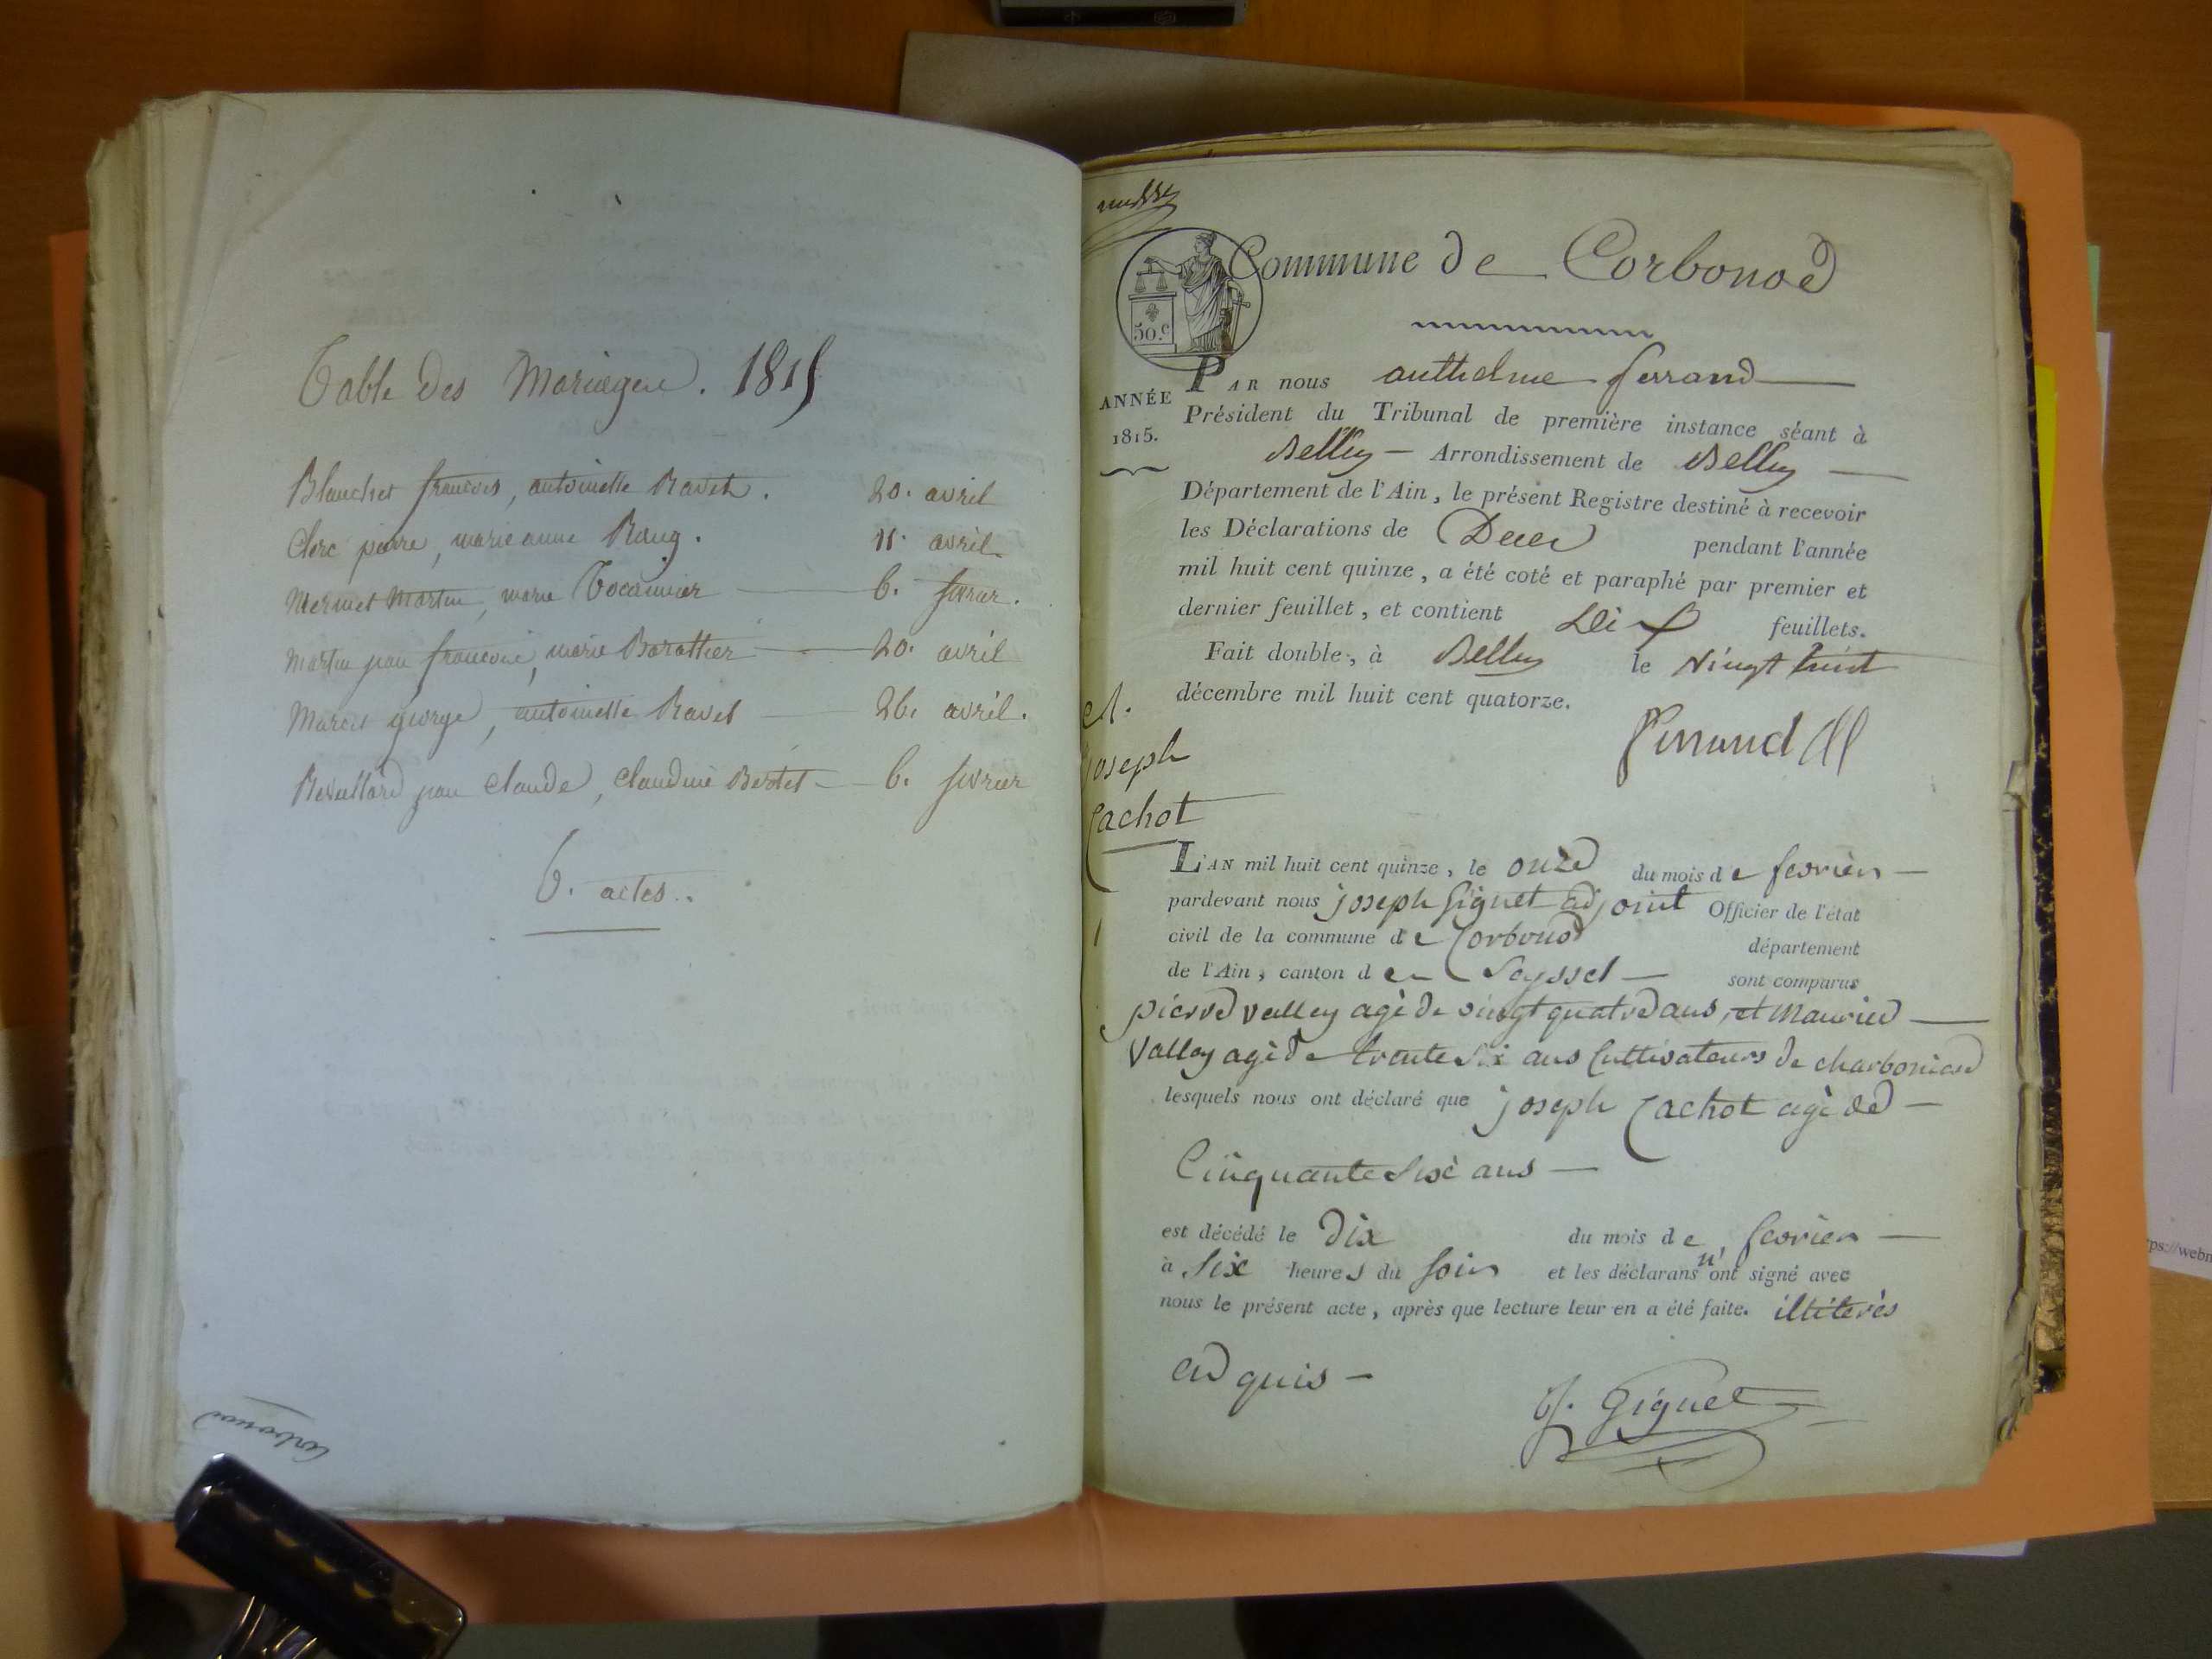 Table des Mariages. 1815
Blanchet françois, antoinette Ravet. 20. avril
Clerc pierre, marie anne Raug. 11. avril
Mermet Martin, marie Tocanier 6. fevrier.
Martin jean françois, marie Barattier 20. avril
Marcet george, antoinette Ravet 26. avril.
Revullard jean claude, claudine Bertet 6. fevrier
6. actes..
Corbonod
Commune de Corbonod
50.c
ANNÉE
1815.
PAR nous anthelme ferrand
Président du Tribunal de première instance séant à
Belley Arrondissement de Belley
Département de l'Ain, le présent Registre destiné à recevoir
les Déclarations de Decès pendant l'année
mil huit cent quinze, a été coté et paraphé par premier et
dernier feuillet, et contient Dix feuillets.
Fait double, à Belley le vingt huit
décembre mil huit cent quatorze.
joseph
Cachot
L'AN mil huit cent quinze, le onze du mois de fevrier
pardevant nous joseph Giguet adjoint Officier de l'état
civil de la commune de Corbonod département
de l'Ain, canton de Seyssel sont comparus
pierre valley agé de vingt quatre ans, et Maurice
Valley agé de trente six ans Cultivateurs de charbonierd
lesquels nous ont déclaré que joseph Cachot agé de
Cinquante six ans
est décédé le dix du mois de fevrier
à six heures du soir et les déclarans n'ont signé avec
nous le présent acte, après que lecture leur en a été faite. illiterés
ed quis
J. Giguet